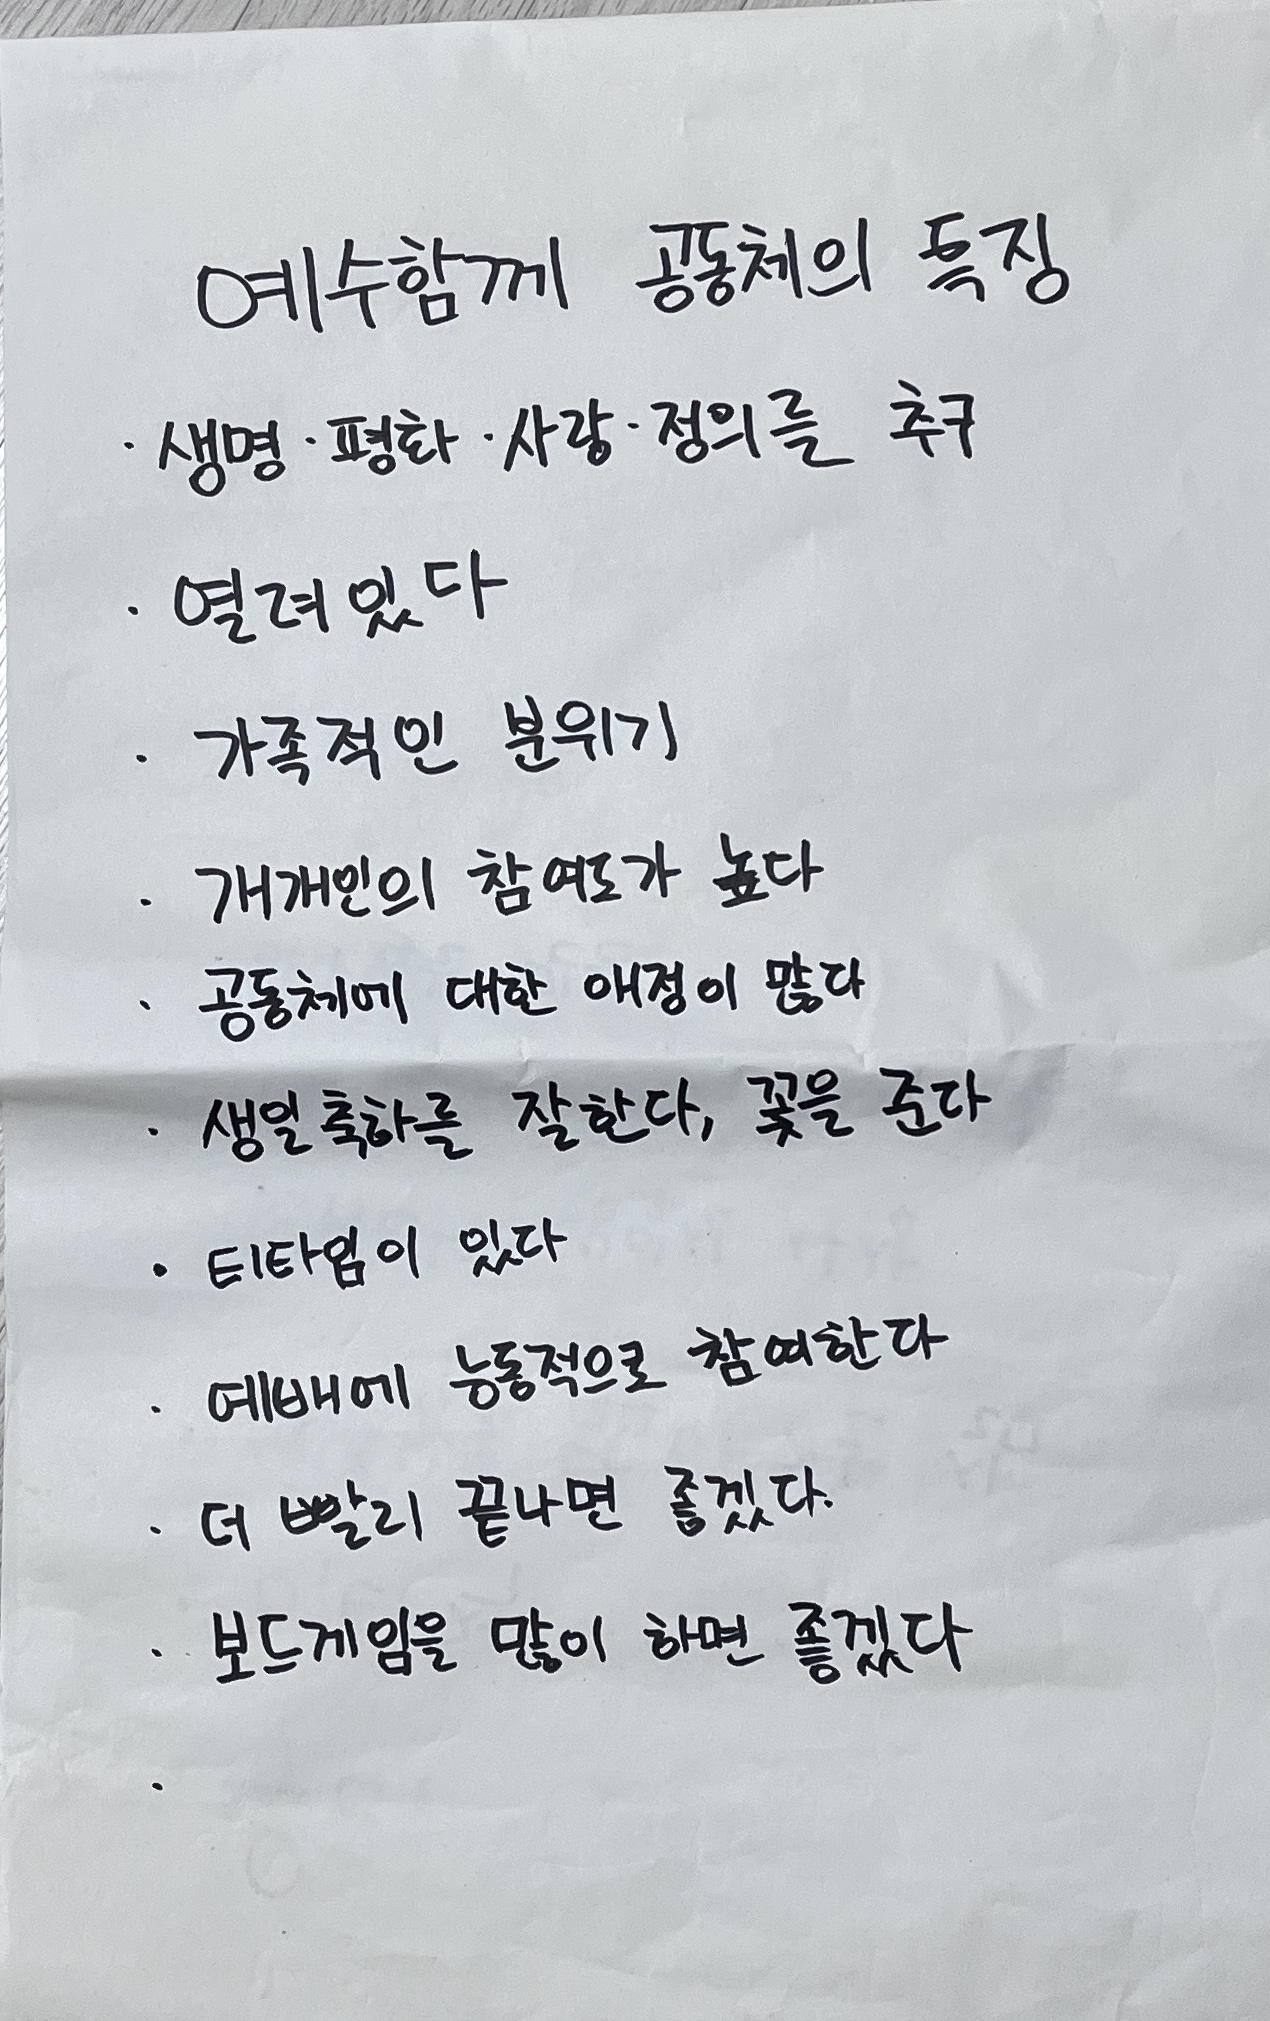 예수함께 공동체의 특징
· 생명·평화·사랑·정의를 추구
· 열려있다
· 가족적인 분위기
· 개개인의 참여도가 높다
· 공동체에 대한 애정이 많다
· 생일축하를 잘한다, 꽃을 준다
· 티타임이 있다
· 예배에 능동적으로 참여한다
· 더 빨리 끝나면 좋겠다.
· 보드게임을 많이 하면 좋겠다
·